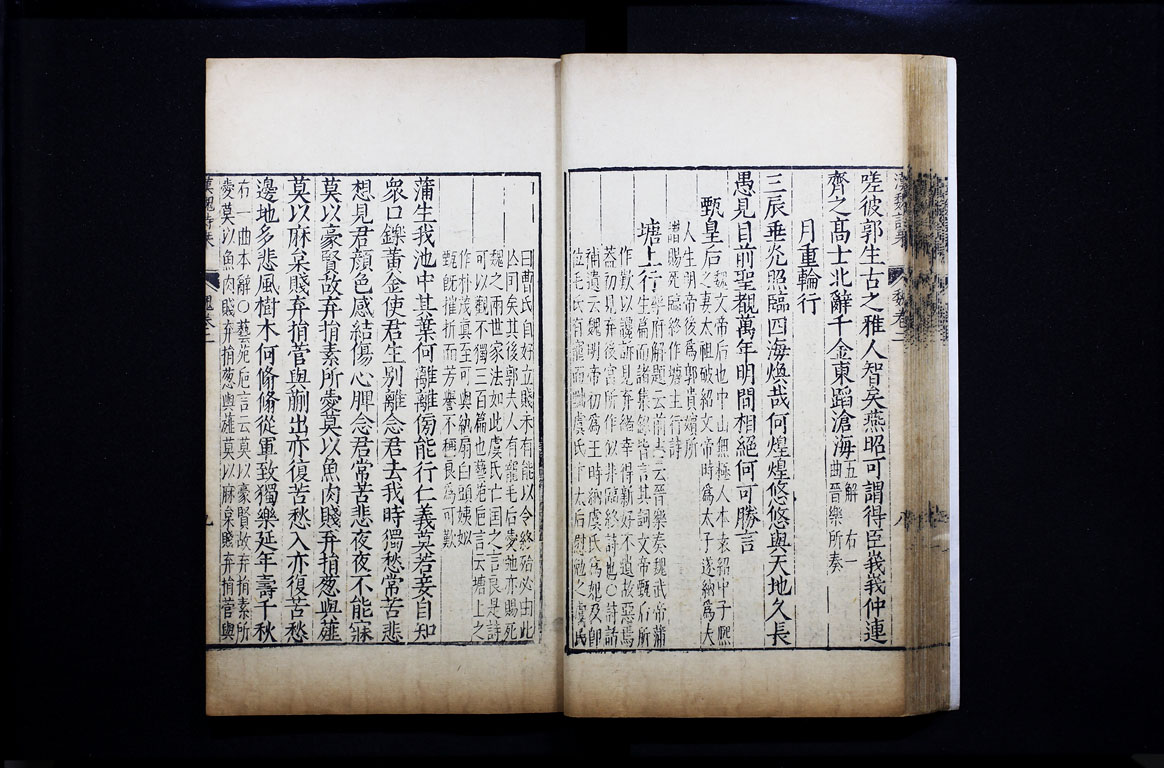 嗟彼郭生古之雅人智矣燕昭可謂得臣峩峩仲連
齊之髙士北辭千金東蹈滄海五解　右一
曲晉樂所奏
月重輪行
三辰垂光照臨四海煥哉何煌煌悠悠與天地久長
愚見目前聖覩萬年明闇相絕何可勝言
甄皇后魏文帝后也中山無極人本袁紹中子熙
之妻太祖破紹文帝時爲太子遂納爲夫
人生明帝後爲郭貴嬪所
譖賜死臨終作塘上行詩
塘上行
樂府解題云前志云晉樂奏魏武帝蒲
生篇而諸集錄皆言其詞文帝甄后所
作歎以讒訴見弃猶幸得新好不遺故惡焉
蓋初見弃後宮所作似非臨終詩也○詩話
補遺云魏明帝初爲王時納虞氏爲妃及即
位毛氏有寵而黜虞氏卞太后慰勉之虞氏
曰曹氏自好立賤未有能以令終殆必由此
於同矣其後郭夫人有寵毛后愛弛亦賜死
魏之兩世家法如此虞氏亡國之言良是詩
可以觀不獨三百篇也藝苑巵言云塘上之
作朴茂眞至可與紈扇白頭姨姒
甄旣摧折而芳譽不稱良爲可歎
蒲生我池中其葉何離離傍能行仁義莫若妾自知
衆口鑠黃金使君生别離念君去我時獨愁常苦悲
想見君顔色感結傷心脾念君常苦悲夜夜不能寐
莫以豪賢故弃捐素所愛莫以魚肉賤弃捐葱與薤
莫以麻枲賤弃捐菅與蒯出亦復苦愁入亦復苦愁
邊地多悲風樹木何脩脩從軍致獨樂延年壽千秋
右一曲本辭○藝苑巵言云莫以豪賢故弃捐素所
愛莫以魚肉賤弃捐葱與薤莫以麻枲賤弃捐菅與
漢魏詩集
魏卷二
九